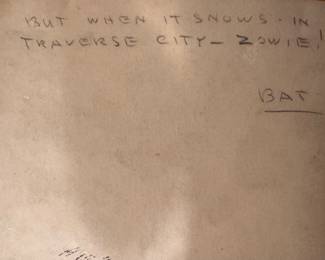 BUT WHEN IT SNOWS. IN
TRAVERSE CITY - ZOWIE!
BAT